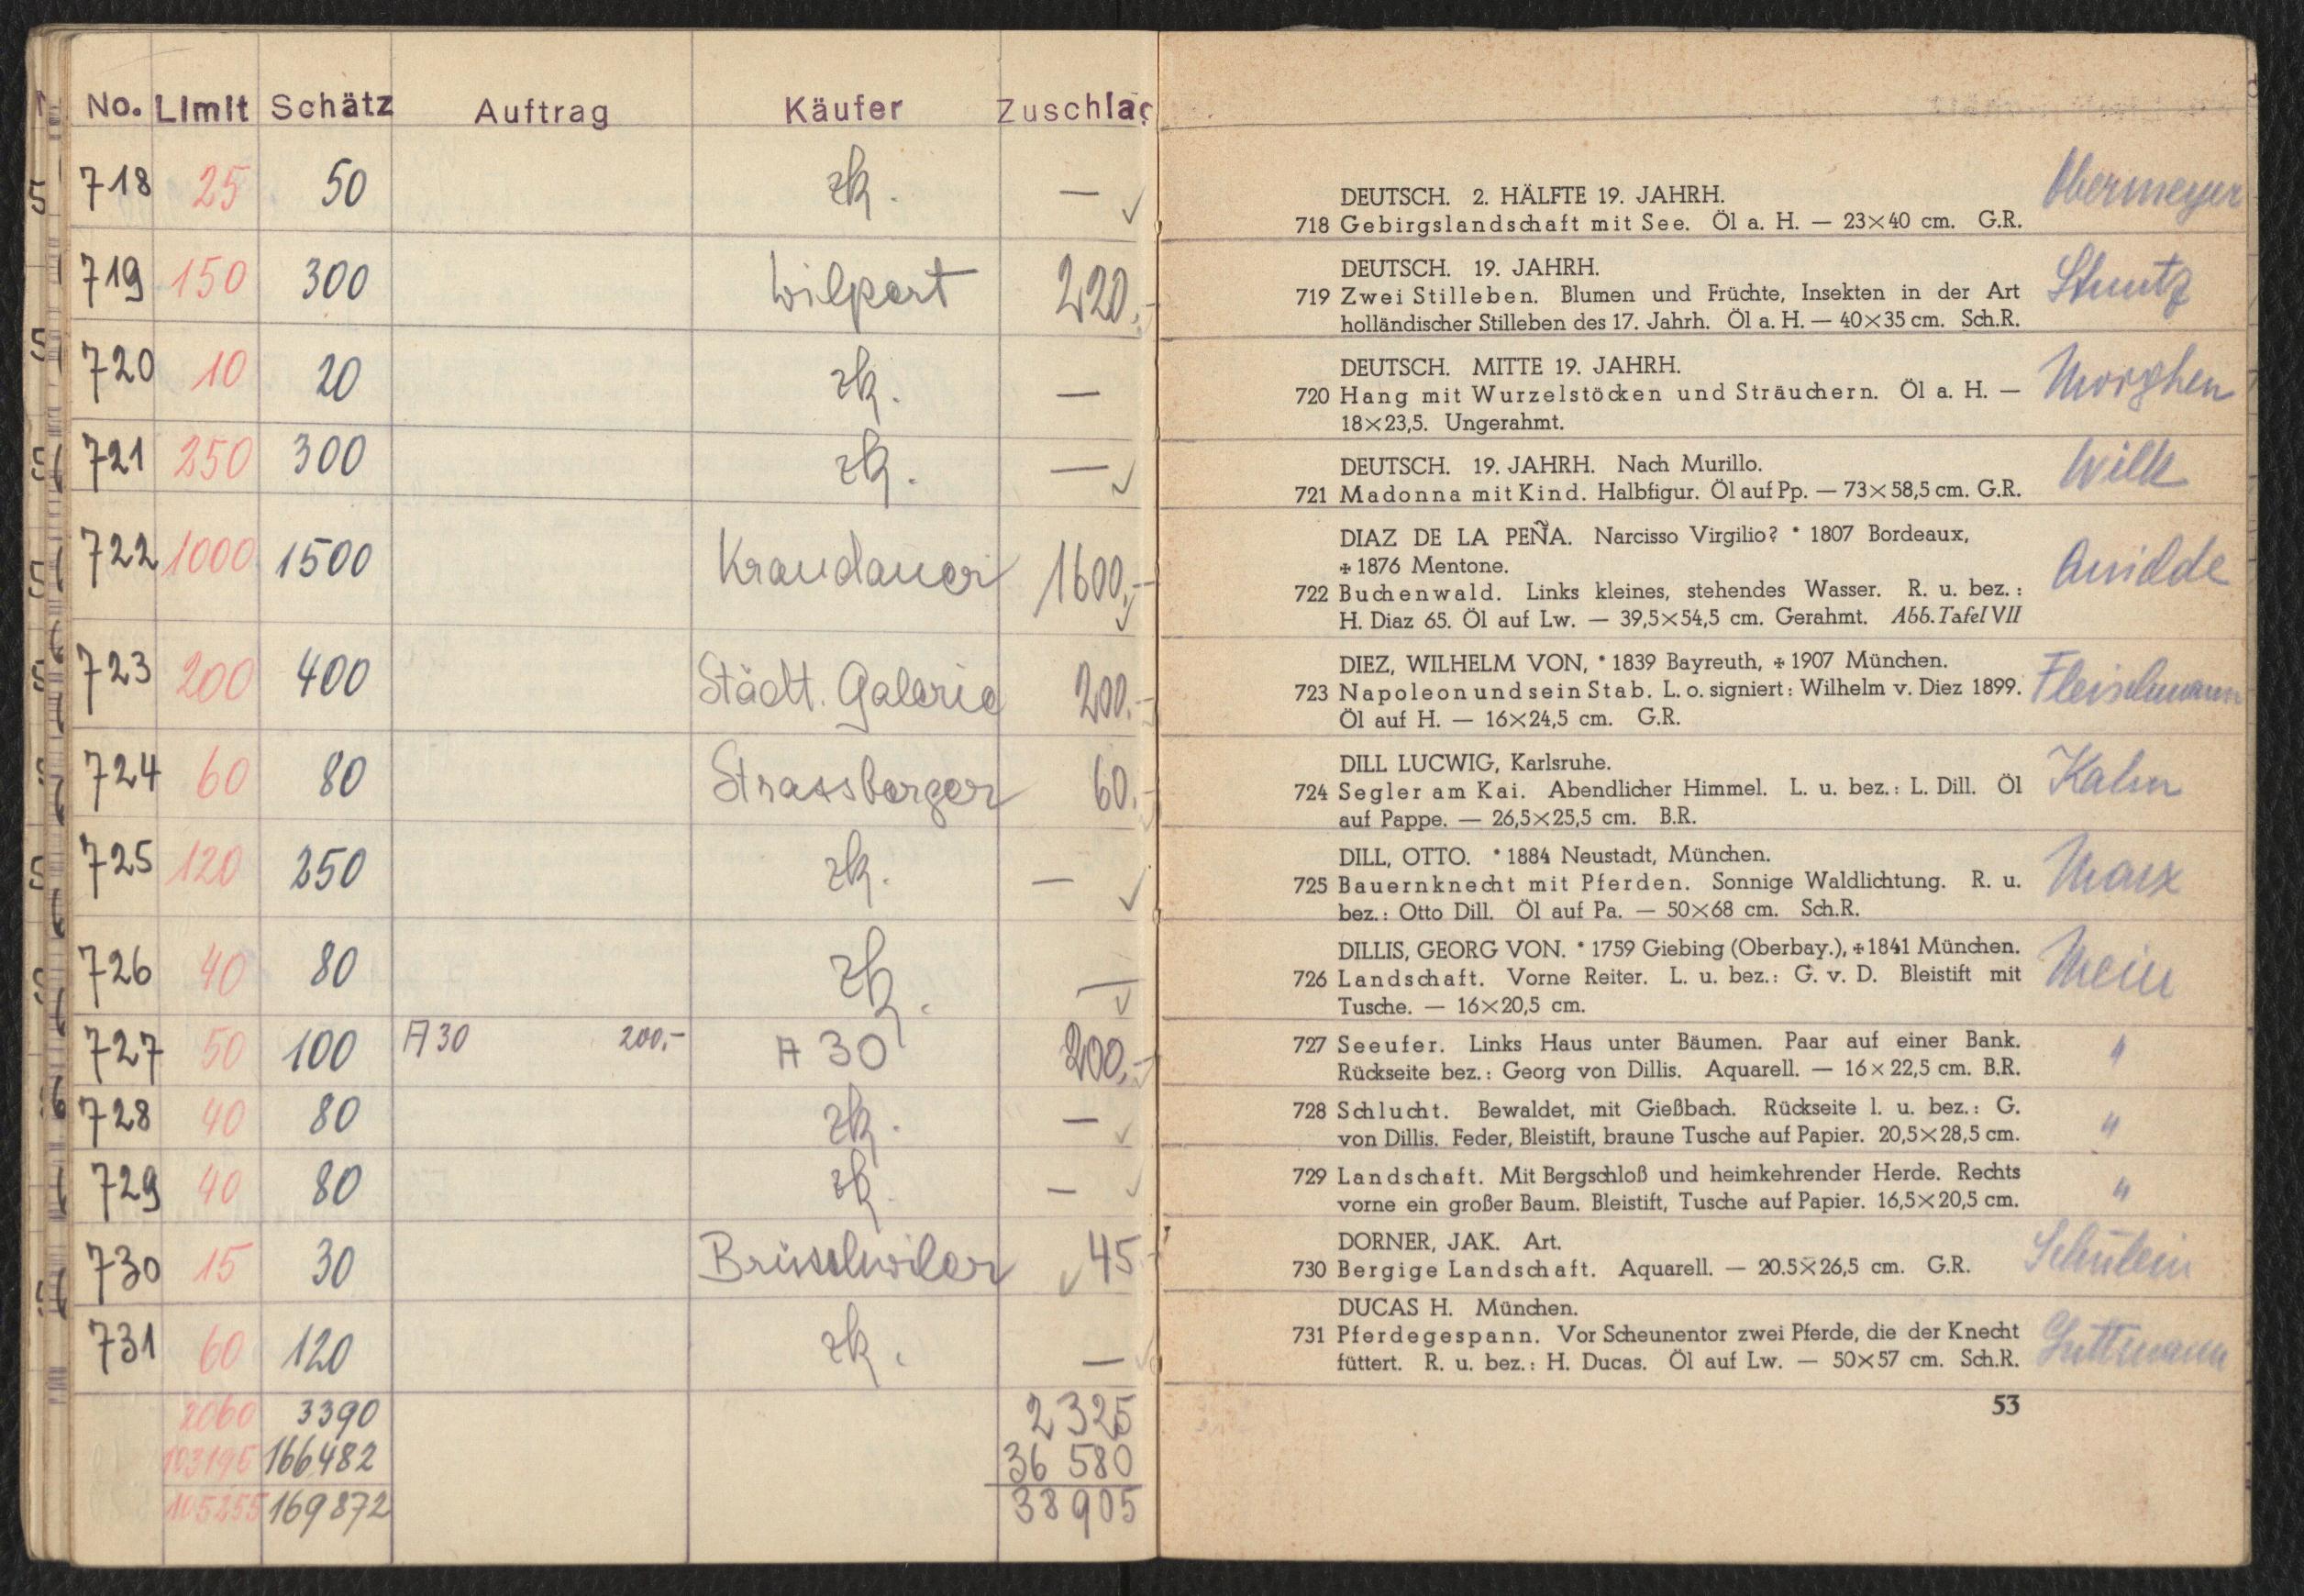 No. Limit Schätz Auftrag Käufer Zuschlag
718 25 50 zk. —
719 150 300 Wilpert 220.-
720 10 20 zk. —
721 250 300 zk. —
722 1000 1500 Kraudauer 1600,-
723 200 400 Städt. Galerie 200.-
724 60 80 Strassberger 60.-
725 120 250 zk. —
726 40 80 zk. —
727 50 100 A 30 200.- A 30 200,-
728 40 80 zk. —
729 40 80 zk. —
730 15 30 45.-
731 60 120 zk. —
2060 3390 2325
103195 166482 36 580
105255 169872 38905
DEUTSCH. 2. HÄLFTE 19. JAHRH. Obermeyer
718 Gebirgslandschaft mit See. Öl a. H. — 23×40 cm. G.R.
DEUTSCH. 19. JAHRH. Stuntz
719 Zwei Stilleben. Blumen und Früchte, Insekten in der Art
holländischer Stilleben des 17. Jahrh. Öl a. H. — 40×35 cm. Sch.R.
DEUTSCH. MITTE 19. JAHRH. Morghen
720 Hang mit Wurzelstöcken und Sträuchern. Öl a. H. —
18×23,5. Ungerahmt.
DEUTSCH. 19. JAHRH. Nach Murillo. Wilk
721 Madonna mit Kind. Halbfigur. Öl auf Pp. — 73×58,5 cm. G.R.
DIAZ DE LA PEÑA. Narcisso Virgilio? * 1807 Bordeaux,
✠ 1876 Mentone. Quidde
722 Buchenwald. Links kleines, stehendes Wasser. R. u. bez.:
H. Diaz 65. Öl auf Lw. — 39,5×54,5 cm. Gerahmt. Abb. Tafel VII
DIEZ, WILHELM VON, * 1839 Bayreuth, ✠ 1907 München.
723 Napoleon und sein Stab. L. o. signiert: Wilhelm v. Diez 1899. Fleischmann
Öl auf H. — 16×24,5 cm. G.R.
DILL LUCWIG, Karlsruhe. Kahn
724 Segler am Kai. Abendlicher Himmel. L. u. bez.: L. Dill. Öl
auf Pappe. — 26,5×25,5 cm. B.R.
DILL, OTTO. * 1884 Neustadt, München. Marx
725 Bauernknecht mit Pferden. Sonnige Waldlichtung. R. u.
bez.: Otto Dill. Öl auf Pa. — 50×68 cm. Sch.R.
DILLIS, GEORG VON. * 1759 Giebing (Oberbay.), ✠ 1841 München.
726 Landschaft. Vorne Reiter. L. u. bez.: G. v. D. Bleistift mit
Tusche. — 16×20,5 cm.
727 Seeufer. Links Haus unter Bäumen. Paar auf einer Bank. "
Rückseite bez.: Georg von Dillis. Aquarell. — 16×22,5 cm. B.R.
728 Schlucht. Bewaldet, mit Gießbach. Rückseite l. u. bez.: G. "
von Dillis. Feder, Bleistift, braune Tusche auf Papier. 20,5×28,5 cm.
729 Landschaft. Mit Bergschloß und heimkehrender Herde. Rechts "
vorne ein großer Baum. Bleistift, Tusche auf Papier. 16,5×20,5 cm.
DORNER, JAK. Art. Schülein
730 Bergige Landschaft. Aquarell. — 20.5×26,5 cm. G.R.
DUCAS H. München.
731 Pferdegespann. Vor Scheunentor zwei Pferde, die der Knecht Guttmann
füttert. R. u. bez.: H. Ducas. Öl auf Lw. — 50×57 cm. Sch.R.
53